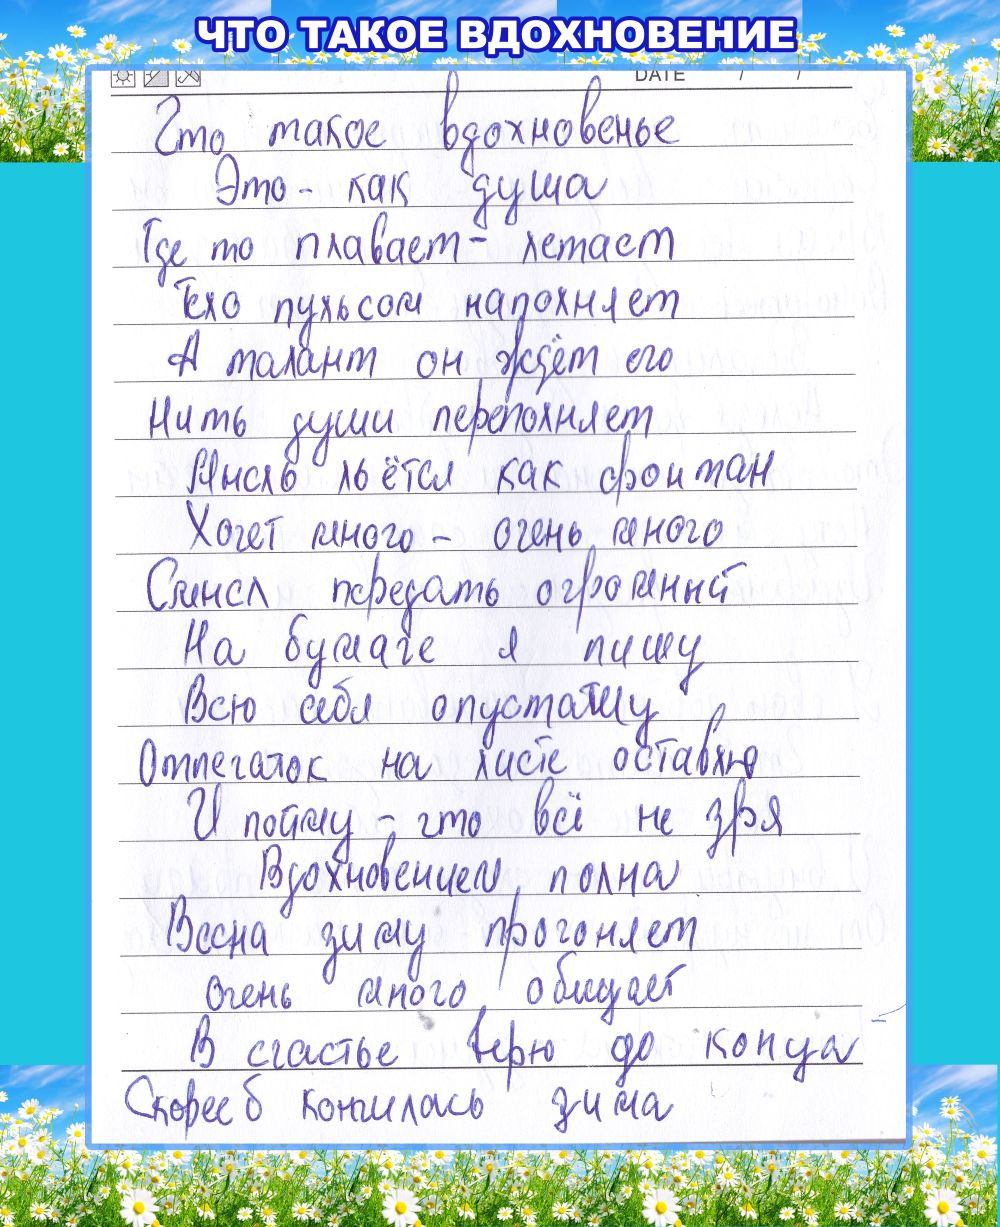 ЧТО ТАКОЕ ВДОХНОВЕНИЕ
DATE / /
Что такое вдохновенье
Это - как душа
Где то плавает - летает
Тело пульсом наполняет
А талант он ждёт его
Нить души переполняет
Мысль льётся как фонтан
Хочет много - очень много
Смысл передать огромный
На бумаге я пишу
Всю себя опустошу
Отпечаток на листе оставлю
И пойму - что всё не зря
Вдохновением полна
Весна зиму прогоняет
Очень много обищает
В счастье верю до конца
Скорее б кончилась зима